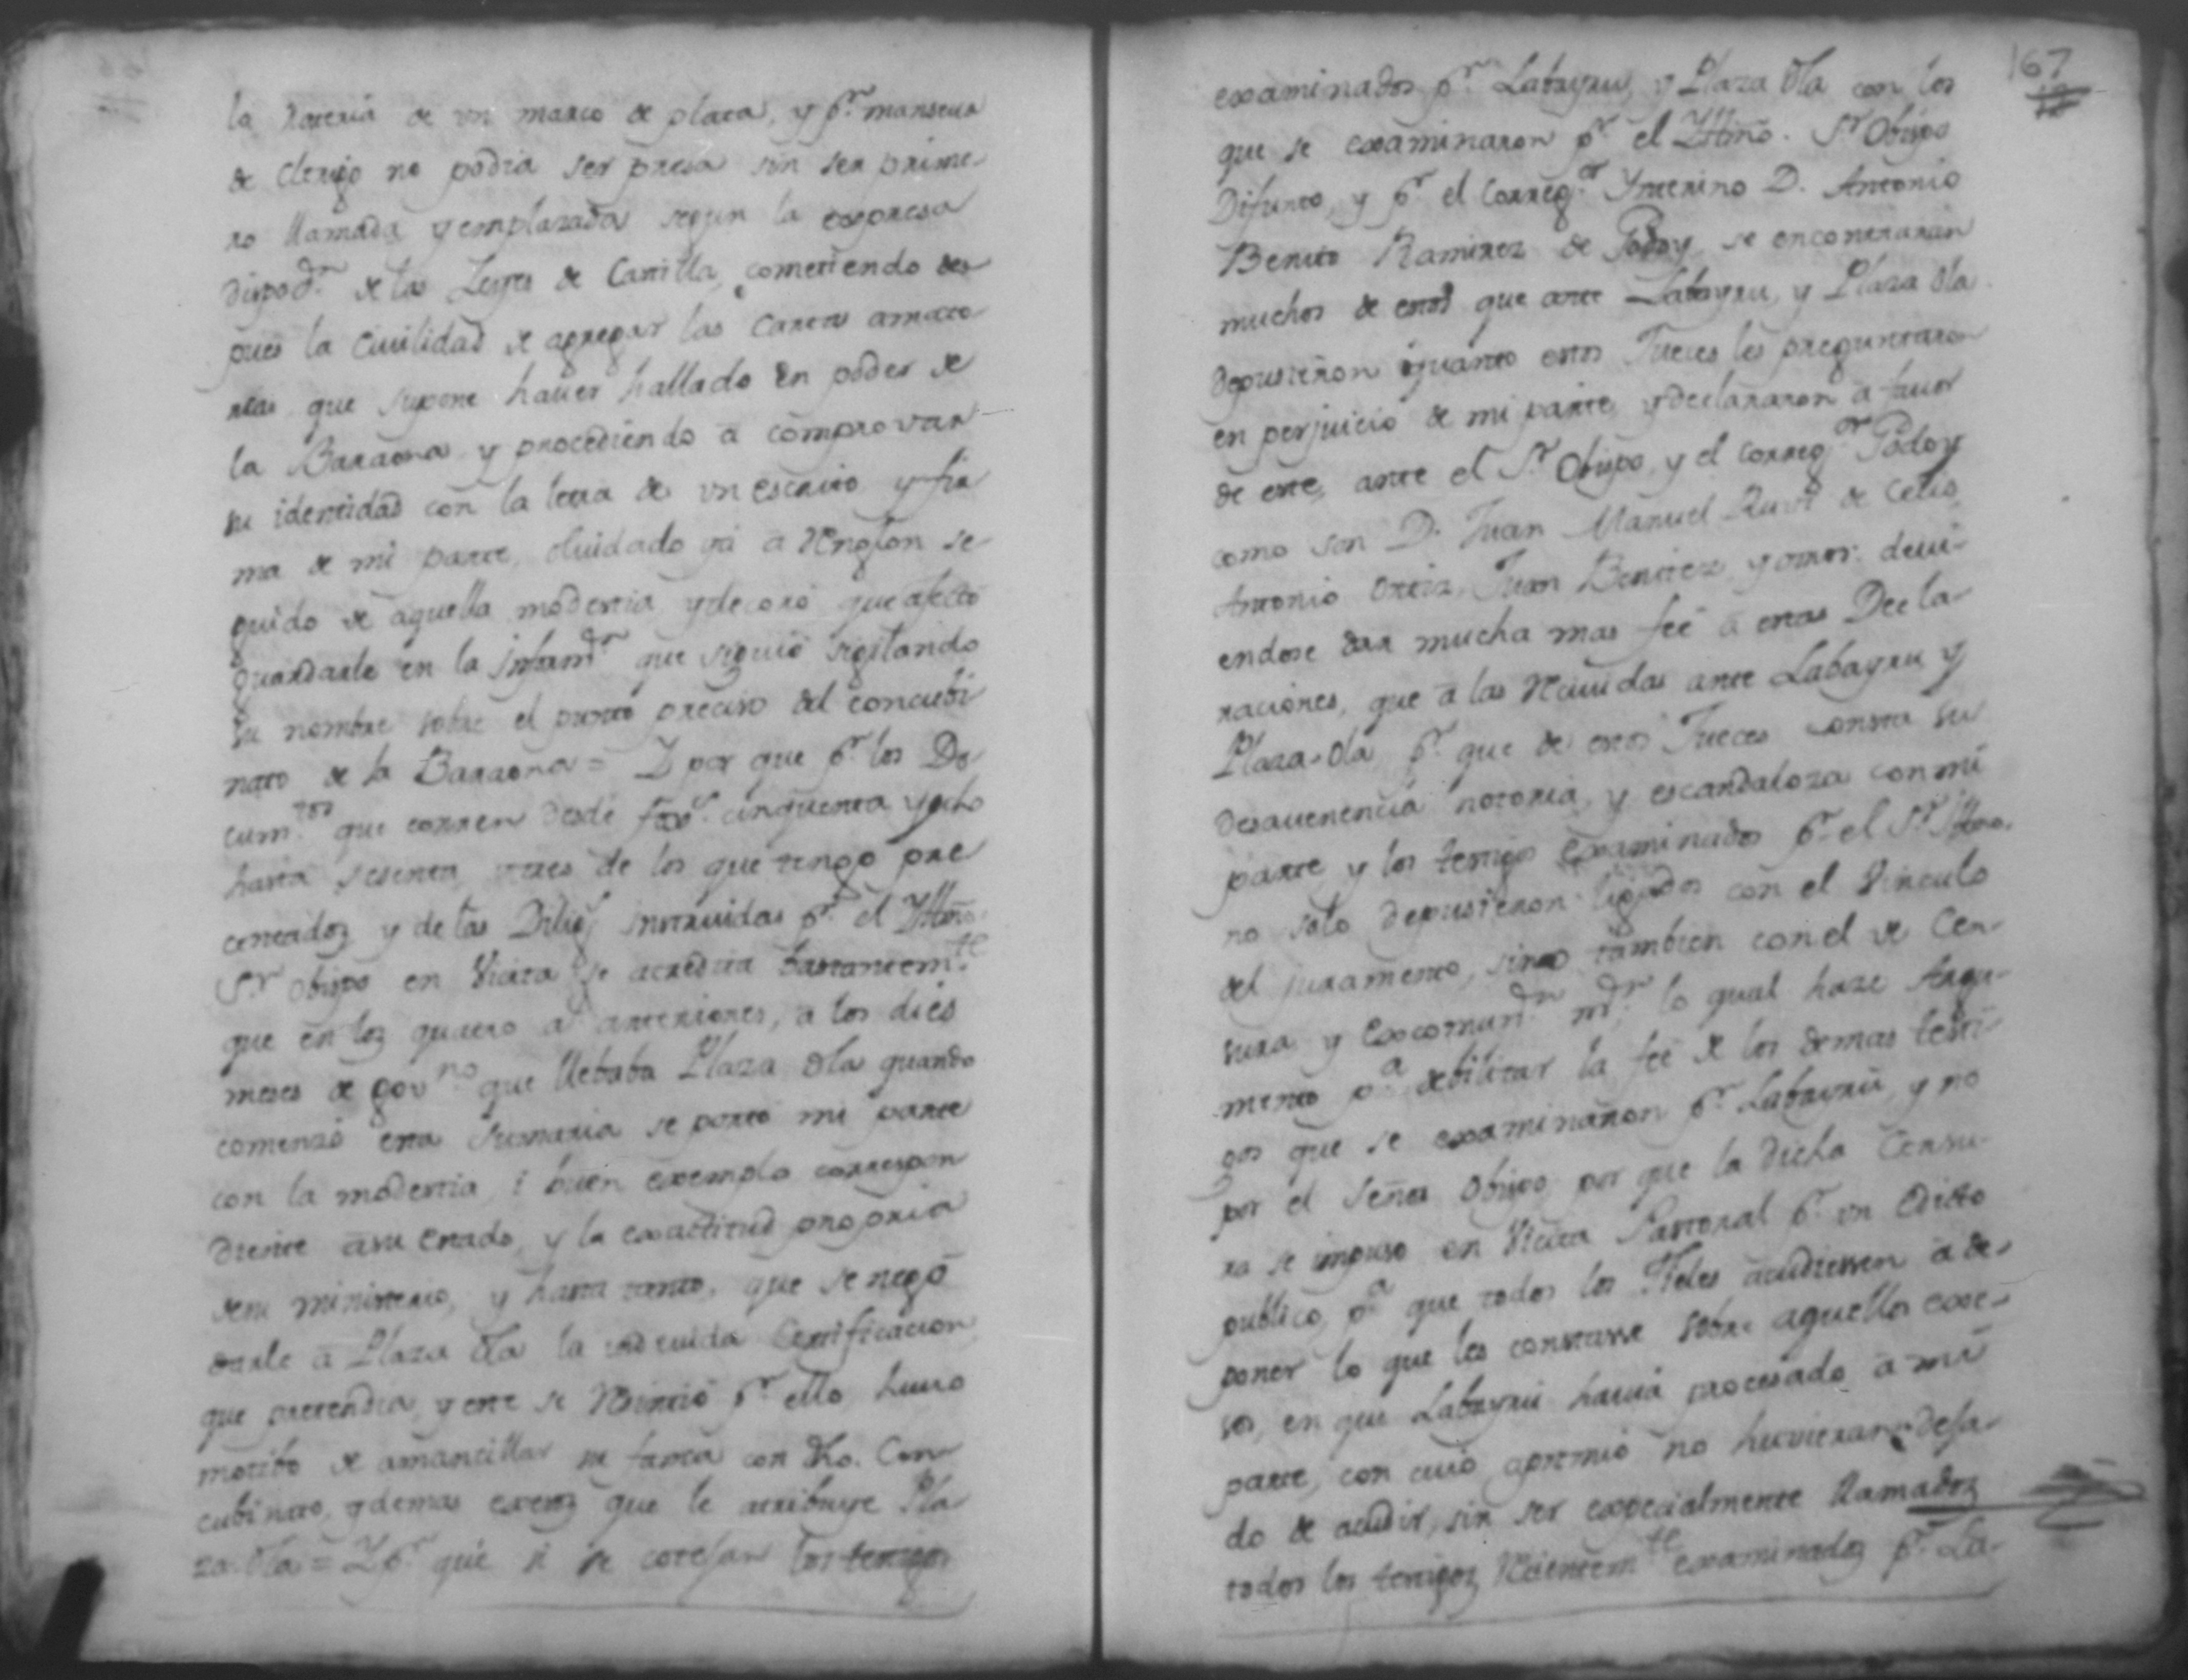 la rateria de un marco de plata, y pr. manseva
de clerigo no podia ser presa sin ser prime-
ro llamada y emplazada segun la expresa
dispocn. de las Leyes de Castilla, cometiendo des-
pues la civilidad de agregar las cartas amato-
rias que supone haver hallado en poder de
la Baraona y procediendo a comprovar
su identidad con la letra de un escrito y fir
ma de mi parte, olvidado ya a renglon se-
guido de aquella modestia y decoro que afectó
guardarle en la informn. que siguió sigilando
su nombre sobre el punto preciso del concubi
nato de la Barraona = Y por que pr. los Do-
cumtos. que corren desde foxs. cinquenta y ocho
hasta sesenta y tres de los que tengo pre
centadoz y de las Diligs. instruidas pr. el Yltmo.
Sr. obispo en Vicita se acredita bastantemte.
que en loz quatro as. anteriores, a los diés
meses de govno. que llebaba Plaza Ola quando
comenzó esta sumaria se portó mi parte
con la modestia i buen exemplo correspon
diente a su estado, y la exactitud propria
de su ministerio, y hasta tanto, que se negó
darle a Plaza Ola la indevida Certificacion
que pretendia, y este se resintió pr. ello, huvo
motibo de amancillar su fama con dho. Con-
cubinato, y demas exesoz que le atribuye Pla-
za Ola = Y pr. que si se cotejan los testigos
167
examinados pr. Labayru, y Plaza Ola con los
que se examinaron pr. el Yltmo. Sr. Obispo
Difunto, y pr. el Corregor. Ynterino D. Antonio
Benito Ramirez de Godoy, se encontraran
muchos de estos que ante Labayru, y Plaza Ola
depusieron quanto estos Jueces les preguntaron
en perjuicio de mi parte, y declararon a favor
de este, ante el Sr. Obispo, y el Corregor. Godoy
como son D. Juan Manuel Ruis de Celis,
Antonio Ortiz, Juan Benitez y otros: devi-
endose dar mucha mas feé a estas Decla-
raciones, que a las recividas ante Labayru y
Plaza-Ola pr. que de estos Jueces consta su
desavenencia notoria, y escandaloza con mi
parte, y los testigos examinados pr. el Sr. Yltmo.
no solo depusieron ligados con el vinculo
del juramento, sino tambien con el de Cen-
sura y Excomunn. mr. lo qual haze Argu-
mento pa. debilitar la feé de los demas testi-
gos que se examinaron pr. Labayru, y no
por el señor Obispo, por que la dicha Censu-
ra se impuso en Vicita Pastoral pr. un Edicto
publico, pa. que todos los Fieles acudiessen a de-
poner lo que les constasse sobre aquellos exce-
sos, en que Labayru havia procesado a mi
parte, con cuio apremio no huvieran deja-
do de acudir, sin ser especialmente llamadoz
todos los testigoz recientemte. examinadoz pr. La-